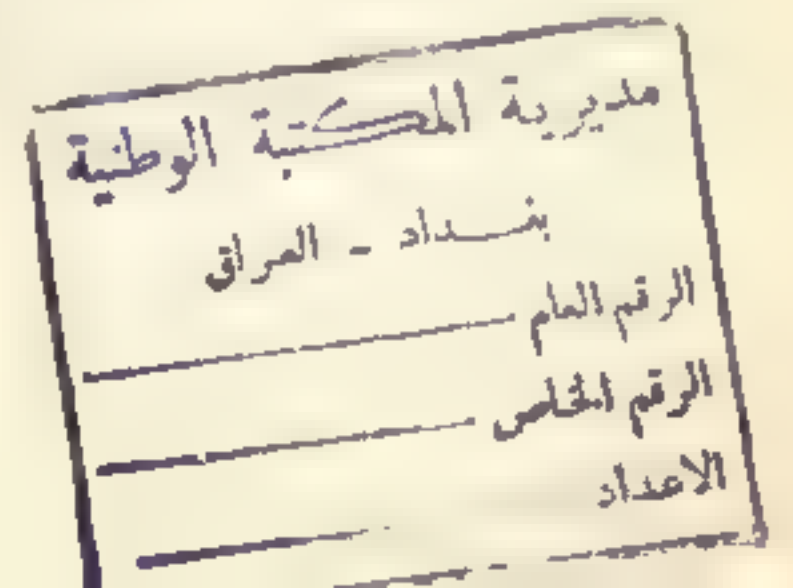 مديرية المكتبة الوطنية
بغداد - العراق
الرقم العام
الرقم الخاص
الاعداد